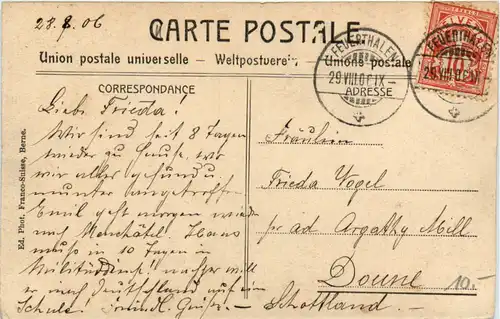 28.8.06
CARTE POSTALE
Union postale universelle – Weltpostverein – Unione postale
CORRESPONDANCE
ADRESSE
FEUERTHALEN
29.VIII.06.IX–
FEUERTHALEN
29.VIII.06.IX
10
Ed. Phot. Franco-Suisse, Berne.
Liebe Frieda!
Wir sind seit 8 Tagen
wieder zu Hause, wo
wir alles gesund u.
munter angetroffen.
Emil geht morgen wieder
nach Neuchâtel. Hans
muss in 10 Tagen in
Militärdienst nachher will
er nach Deutschland auf eine
Schule. Freundl. Grüsse
Fräulein
Frieda Vogel
per ad Argathy Mill
Doune
Schottland.
10.-